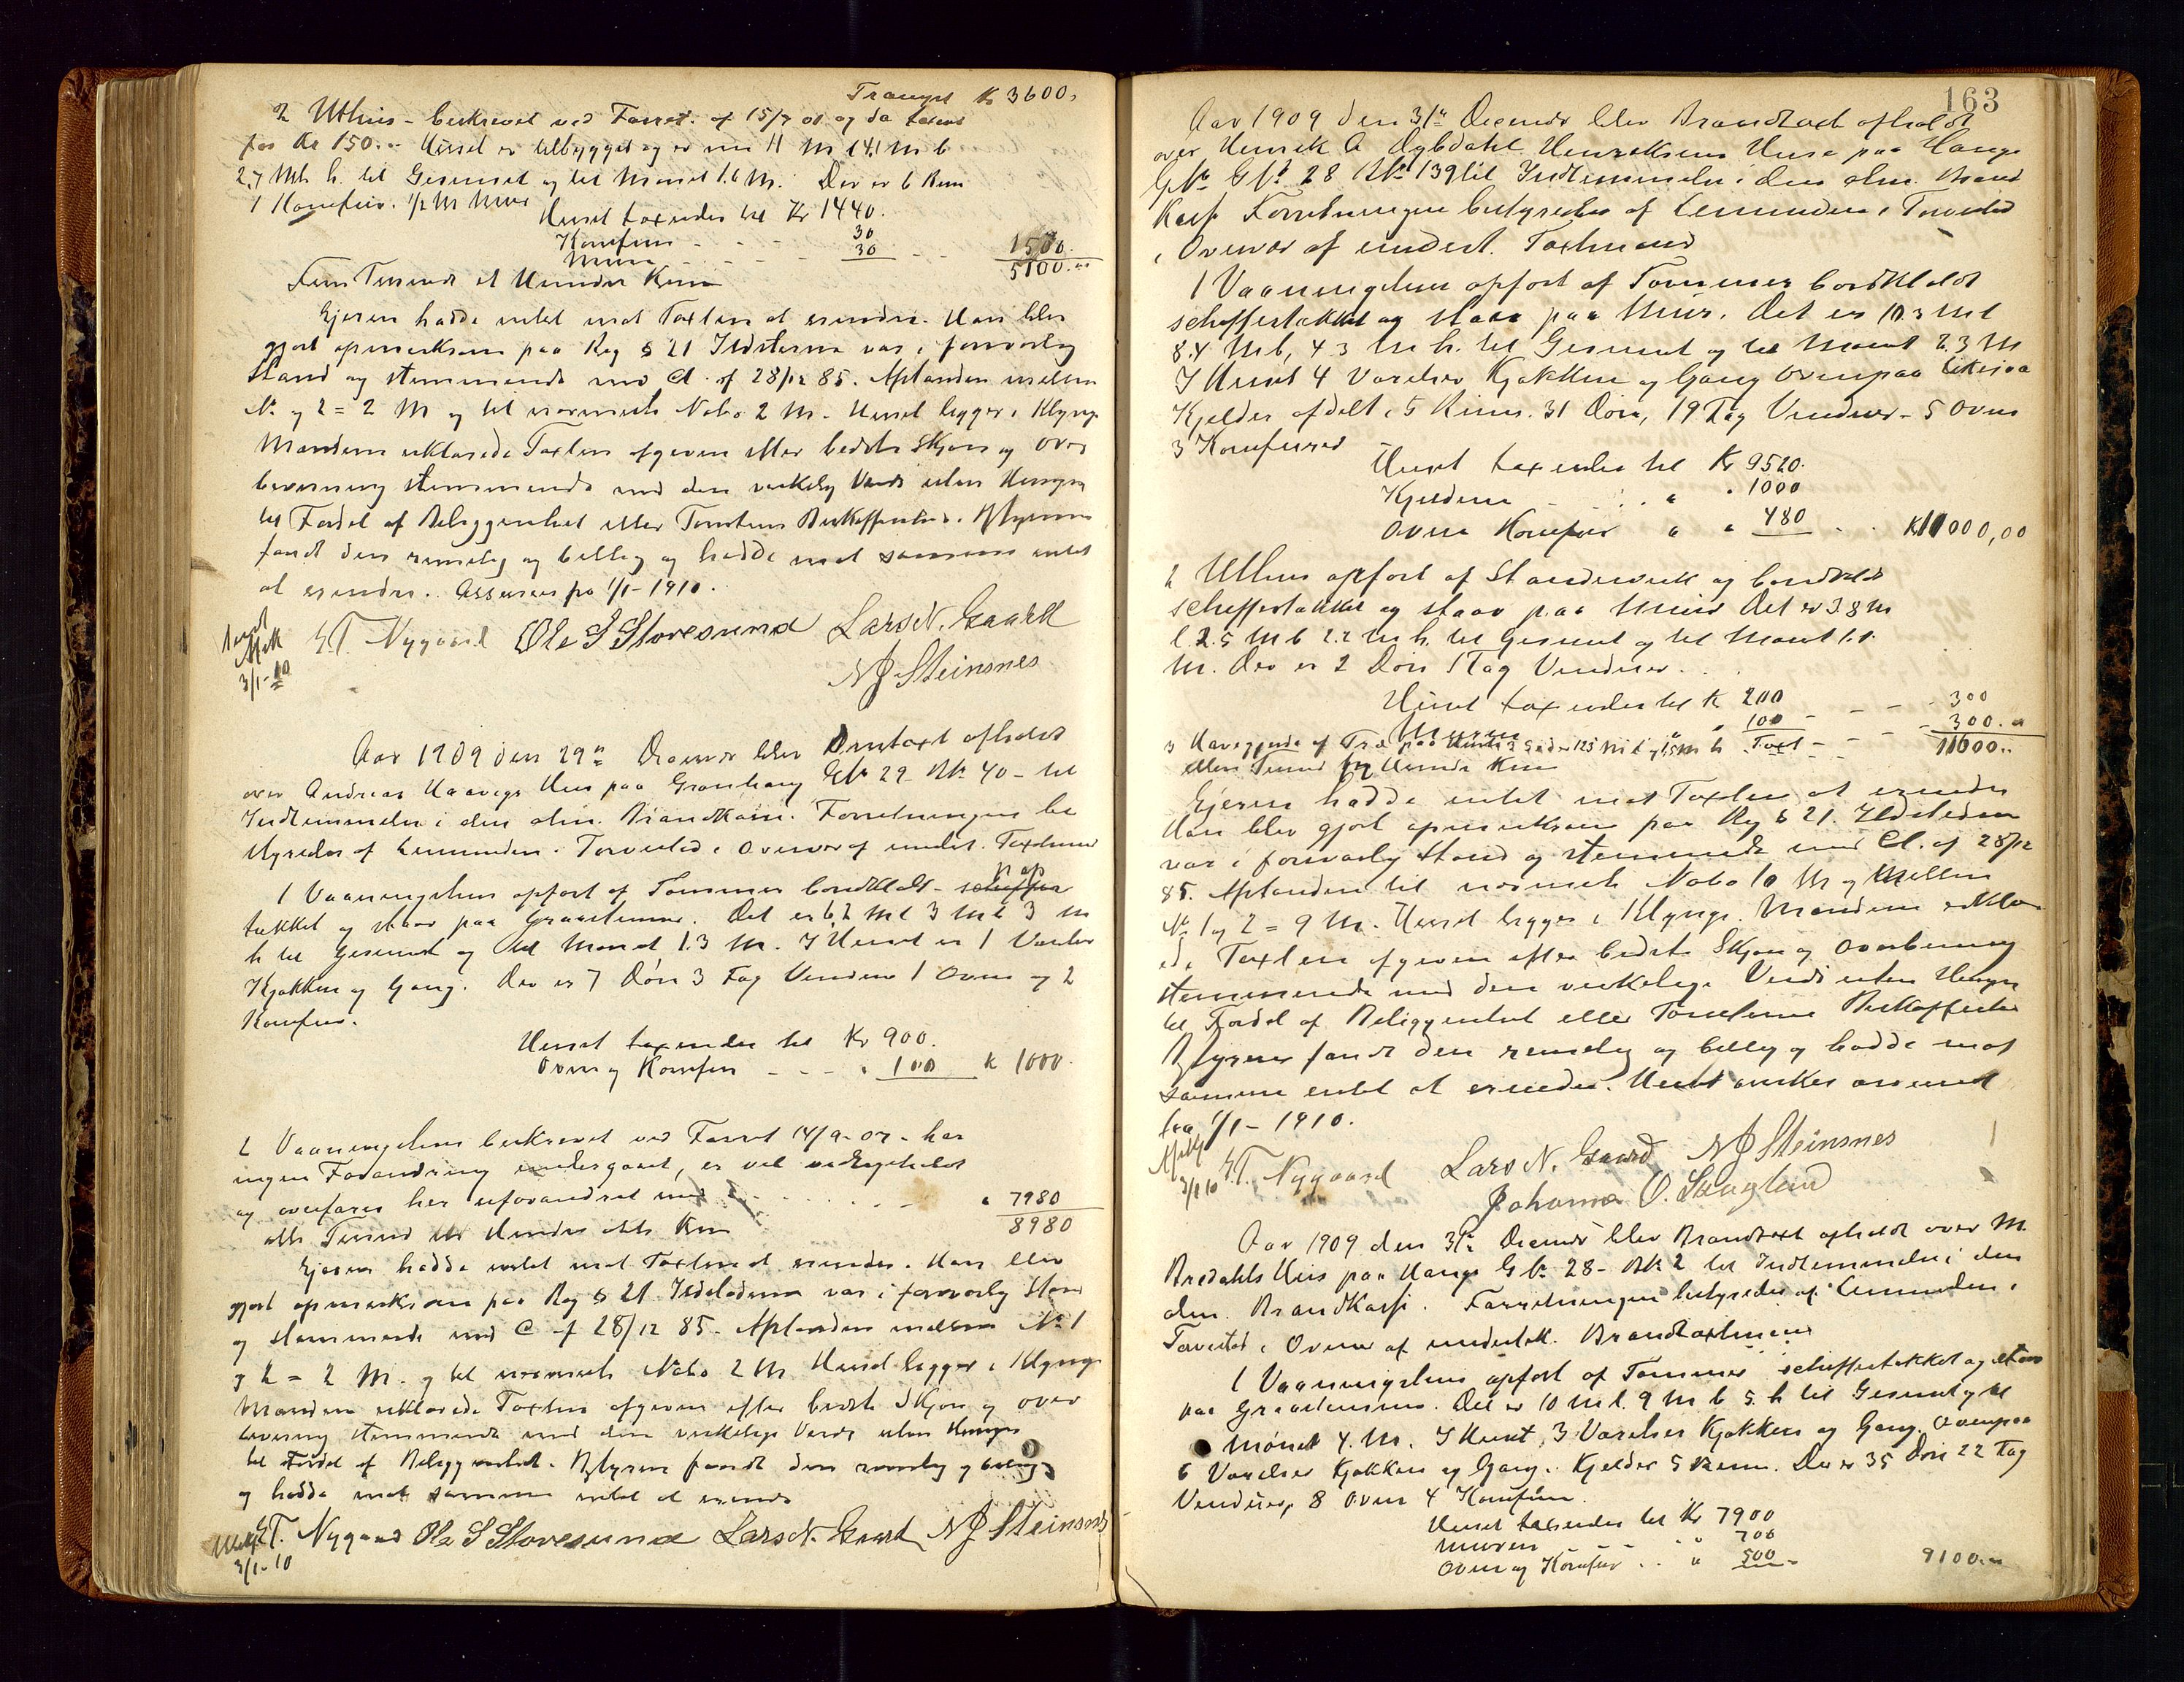 Transport Kr 3600,
2 Uthus - beskrevet ved Forret. af 15/7 01 og da taxeret
for Kr 150.- Huset er tilbygget og er nu 11 M l 4.1 M b
2.7 M h. til Gesimset og til Mønet 1.6 M. Der er 6 Rum
1 Komfur. 1/2 M Mur
Huset taxeredes til Kr 1440.
Komfur - - - 30
Muren - - - - 30 - - 1500.
5100.-
Fem Tusende et Hundre Kroner
Ejeren hadde intet mod Taxten at erindre. Han blev
gjort opmerksom paa Reg § 21 Ildstederne var i forsvarlig
Stand og stemmende med Cl. af 28/12 85. Afstanden mellem
No 1 og 2 = 2 M og til nærmeste Nabo 2 M. Huset ligger i Klynge
Mændene erklærede Taxten afgiven efter bedste Skjøn og over
bevisning stemmende med den virkelige Værdi uden Hensyn
til Fordel af Beliggenhed eller Tomtens Beskaffenhed. Bestyreren
fandt den rimelig og billig og hadde mod samme intet
at erindre. Assureres fra 1/1-1910.
3/1-10
E T. Nygaard Ole S Storesund Lars N. Gaard
N J Steinsnes
Aar 1909 den 29de December blev Brantaxt afholdt
over Andreas Haavigs Hus paa Gronhaug Gbr 29 Bk 40 - til
Indlemmelse i den alm. Brandkasse. Forretningen be
styredes af Lensmanden i Torvestad i Overvær af undert. Taxtmænd
1 Vaaningshus opført af Tømmer bordklædt - pap
tækket og staar paa Graastensmur. Det er 6.2 M l 3 M b 3 M
h til Gesimset og til Mønet 1.3 M. I Huset er 1 Værelse
Kjøkken og Gang. Der er 7 Døre 3 Fag Vinduer 1 Ovn og 2
Komfur.
Huset taxeredes til Kr 900.
Ovn og Komfur - - - " 100 Kr 1000.
2 Vaaningshus beskrevet ved Forret 14/9-07 - har
ingen Forandring undergaaet, er vel vedligeholdt
og overføres her uforandret med - - - " 7980
8980
otte Tusend ni Hundre otti Kroner
Ejeren hadde intet mod Taxten at erindre. Han blev
gjort opmerksom paa Reg § 21 Ildstederne var i forsvarlig Stand
og stemmende med C af 28/12 85 - Afstanden mellem No 1
og 2 = 2 M. og til nærmeste Nabo 2 M Huset ligger i Klynge
Mændene erklærede Taxten afgiven efter bedste Skjøn og over
bevisning stemmende med den virkelige Værdi uden Hensyn
til Fordel af Beliggenhed. Bestyreren fandt den rimelig og billig
og hadde mod samme intet at erindre
E T. Nygaard Ole S Storesund Lars N. Gaard N J Steinsnes
3/1-10
163
Aar 1909 den 31te December blev Brandtaxt afholdt
over Henrik A Dybdahl Henriksens Huse paa Hauge
Gbr 28 Bk 139 til Indlemmelse i den alm. Brand
kasse Forretningen bestyredes af Lensmanden i Torvestad
i Overvær af undert. Taxtmænd
1 Vaaningshus opført af Tømmer bordklædt
skiffertækket og staar paa Mur. Det er 10.3 M l
8.4 M b, 4.3 M h. til Gesimset og til Mønet 2.3 M
I Huset 4 Værelser Kjøkken og Gang Ovenpaa likesaa
Kjelder afdelt i 5 Rum. 31 Døre, 19 Fag Vinduer - 5 Ovne
3 Komfurer
Huset taxeredes til Kr 9520.
Kjelderen - " " 1000
Ovne Komfur " " 480 - - Kr 11000,00
2 Uthus opført af Standerverk og bordklædt
skiffertækket og staar paa Mur Det er 3.8 M
l. 2.5 M b 2.2 M h. til Gesimset og til Mønet 1.1
M. Der er 2 Døre 1 Fag Vinduer.
Huset taxeredes til Kr 200
Muren " 100 - - - 300
3 Havegjerde af Træ paa Mur 125 M l og 1.5 M h Taxt - - 300.-
11600.-
elleve Tusend sex Hundre Kroner
Ejeren hadde intet mod Taxten at erindre
Han blev gjort opmerksom paa Reg § 21. Ildstederne
var i forsvarlig Stand og stemmende med Cl. af 28/12
85. Afstanden til nærmeste Nabo 10 M og mellem
No 1 og 2 = 9 M. Huset ligger i Klynge. Mændene erklær
ede Taxten afgiven efter bedste Skjøn og Overbevisning
stemmende med den virkelige Værdi uden Hensyn
til Fordel af Beliggenhed eller Tomtens Beskaffenhed
Bestyreren fandt den rimelig og billig og hadde mod
samme intet at erindre. Huset ønskes assureret
fra 1/1-1910.
3/1 10 E T. Nygaard Lars N. Gaard N J Steinsnes
Johannes O. Skaglund
Aar 1909 den 31te December blev Brandtaxt afholdt over M.
Bredahls Hus paa Hauge Gbr 28 - Bk 2 til Indlemmelse i den
alm. Brandkasse. Forretningen bestyredes af Lensmanden i
Torvestad i Overvær af undertek. Brandtaxtmænd
1 Vaaningshus opført af Tømmer skiffertækket og staar
paa Graastensmur. Det er 10 M l. 9 M b 5. h til Gesimset og til
Mønet 4. M. I Huset 3 Værelser Kjøkken og Gang. Ovenpaa
6 Værelser Kjøkken og Gang. Kjelder 5 Rum. Der er 35 Døre 22 Fag
Vinduer, 8 Ovne 4 Komfur.
Huset taxeredes til Kr 7900
Muren - - - " 700
Ovne og Komfur . . " 500 - 9100.-